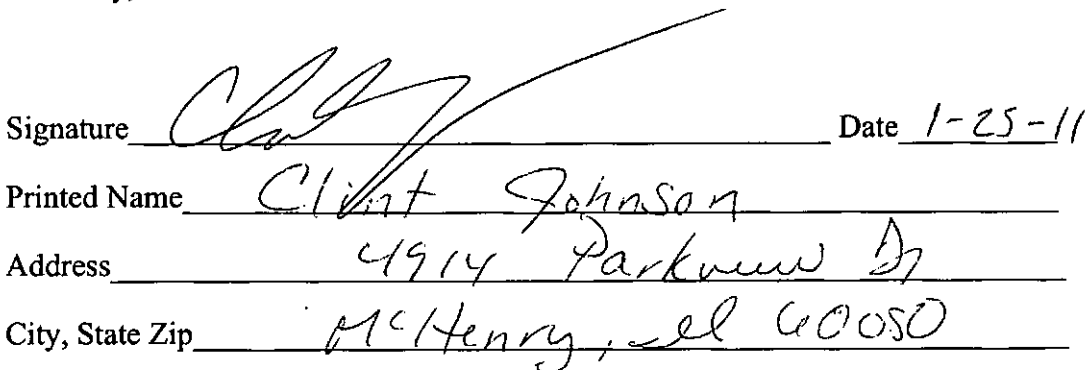 Signature Date 1-25-11
Printed Name Clint Johnson
Address 4914 Parkview Dr
City, State Zip McHenry, Il 60050